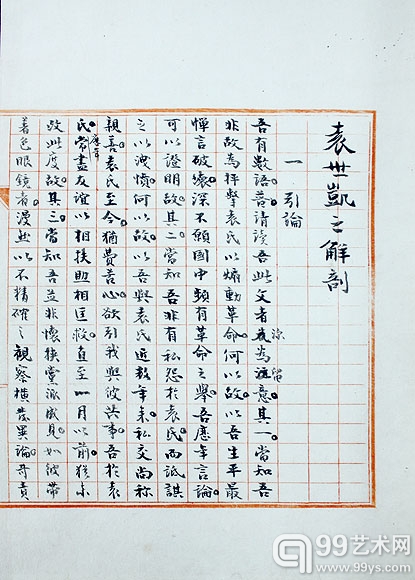 袁世凱之解剖
一 引論
吾有數語。普請讀吾此文者。深為留意。其一當知吾
非故為抨擊袁氏以煽動革命。何以故。以吾生平最
憚言破壞。深不願國中頻有革命之舉。吾歷年言論。
可以證明故。其二當知吾非有私怨於袁氏。而詆諆
之以洩憤。何以故。以吾與袁氏近數年來私交尚稱
親善。袁氏至今猶費苦心。欲引我與彼共事。吾於袁
氏常盡友誼以相扶助相匡救。直至一月以前。猶未
改此度故。其三當知吾並非懷挾黨派感見。如彼帶
著色眼鏡者。漫然以不精確之觀察。橫發異論。苛責
99艺术网
www.99ys.com